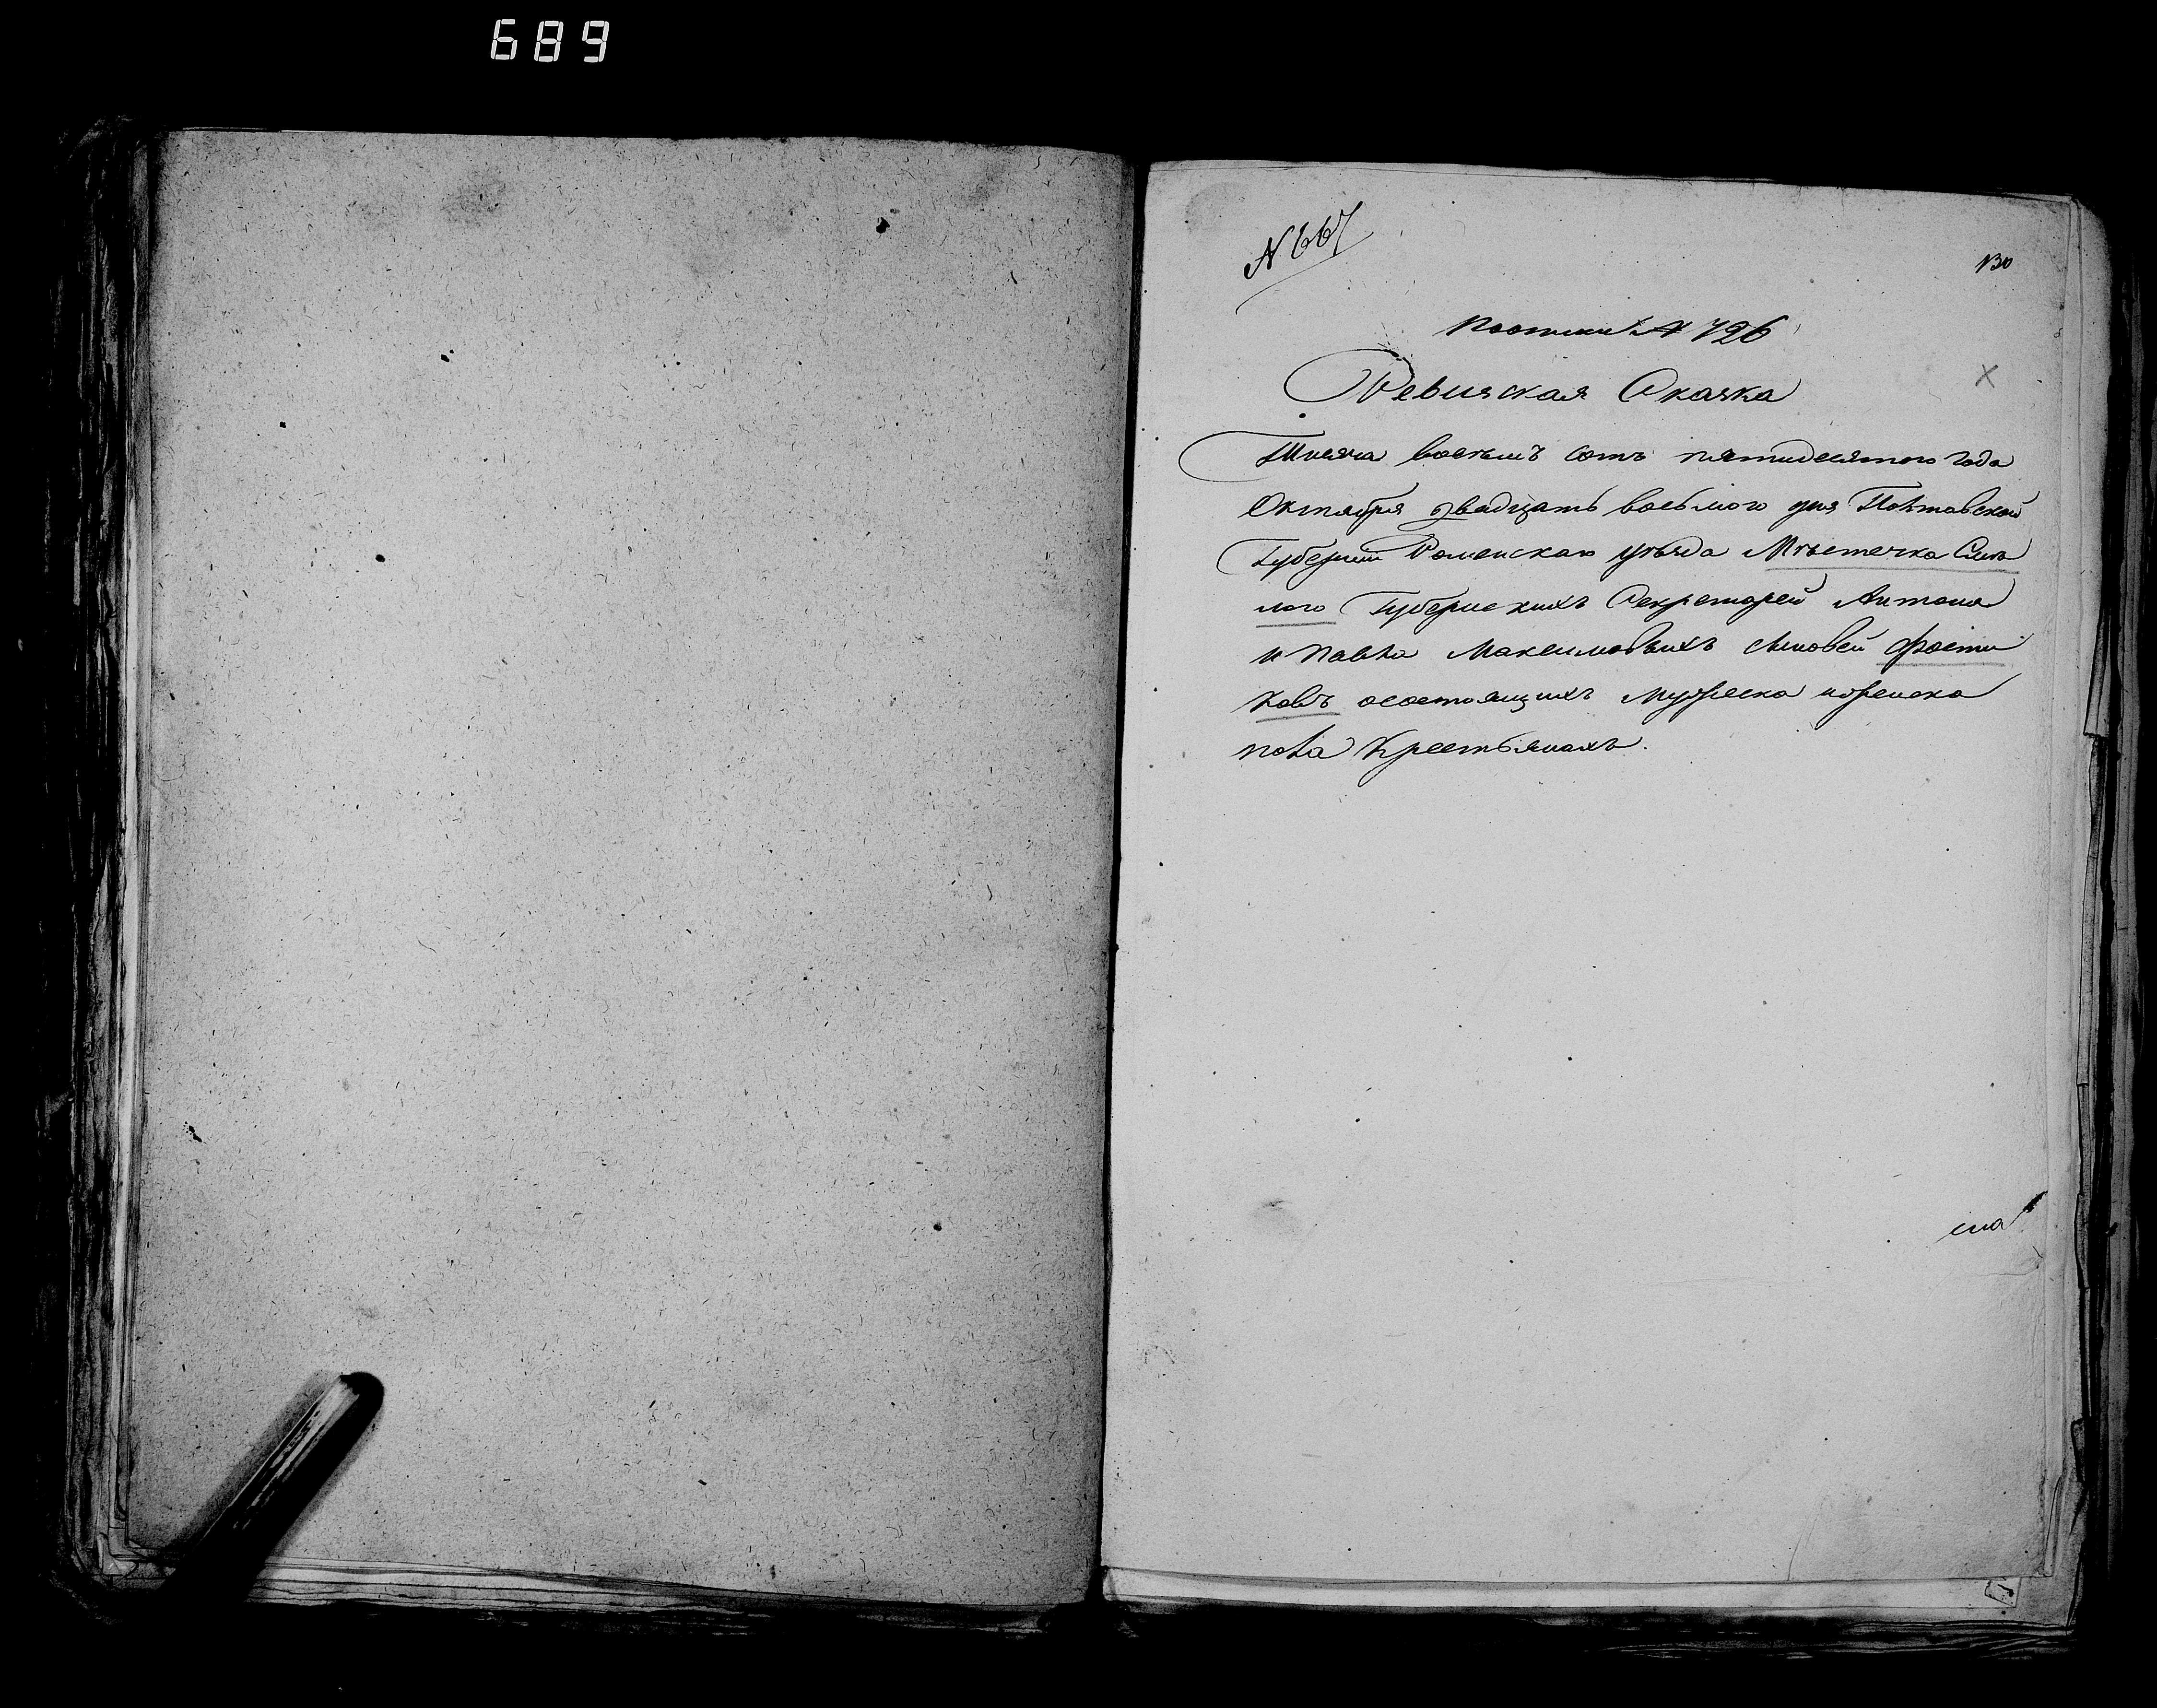 689
N 667
130
Почтик N 726
Ревизская Сказка
Тысяча восемъ сотъ пятидесятого года
Октября двадцать восьмого дня Полтавской
Губерніи Роменскаго уѣзда Мѣстечка Смѣ
лого Губернскихъ Секретарей Антона
и Павла Максимовыхъ сыновей Фести
ковъ осостоящихъ Мужеска иженска
пола Крестьянахъ.